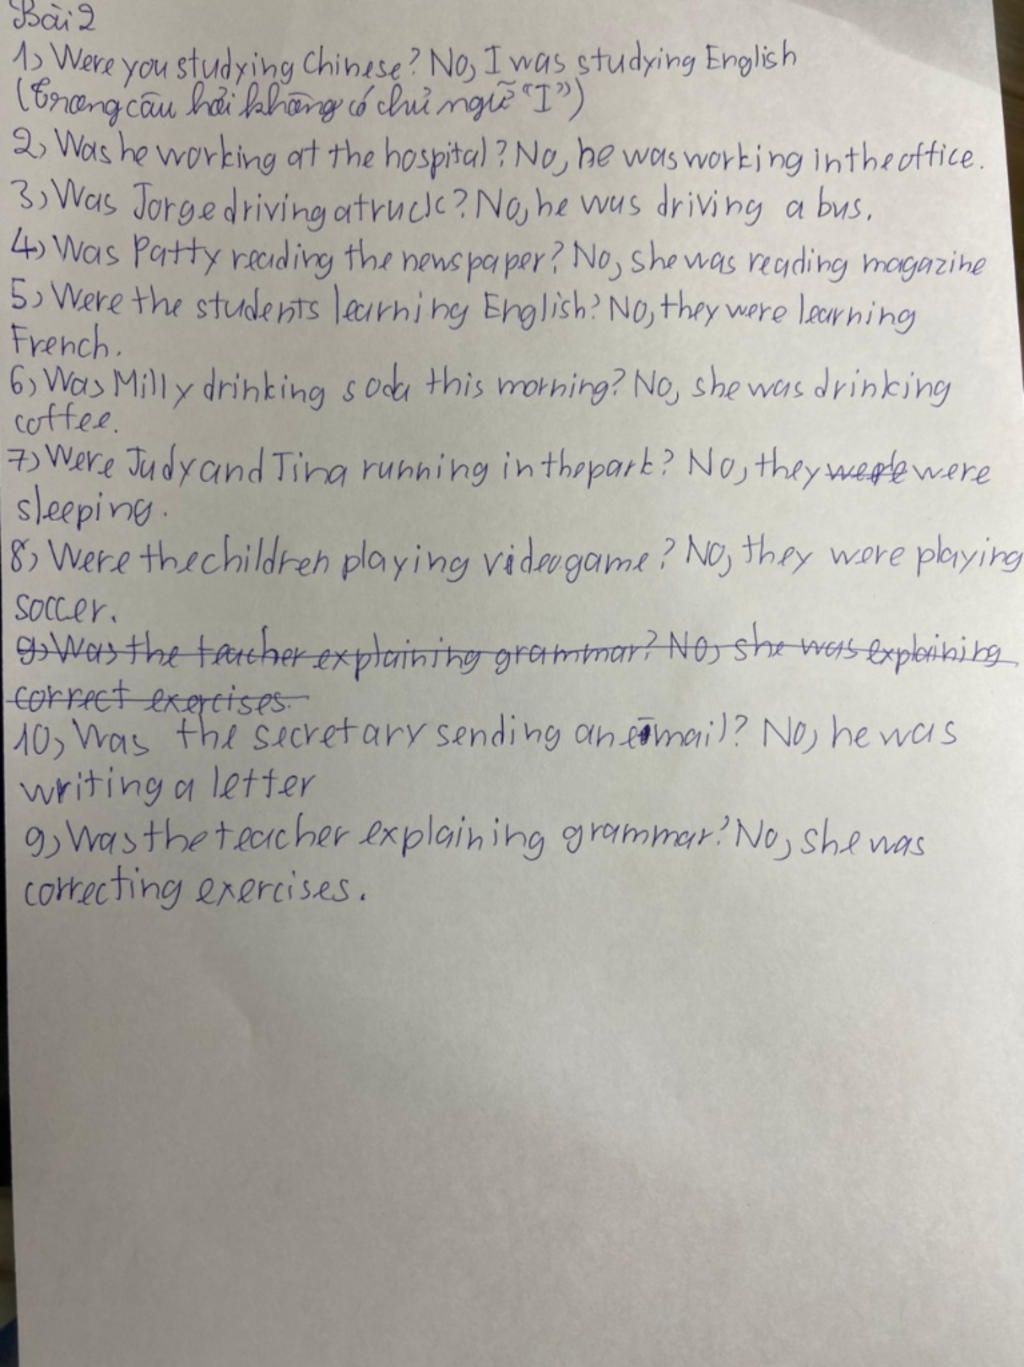 Bài 2
1) Were you studying Chinese? No, I was studying English
(Trong câu hỏi không có chủ ngữ "I")
2) Was he working at the hospital? No, he was working in the office.
3) Was Jorge driving a truck? No, he was driving a bus.
4) Was Patty reading the newspaper? No, she was reading magazine
5) Were the students learning English? No, they were learning
French.
6) Was Milly drinking soda this morning? No, she was drinking
coffee.
7) Were Judy and Tina running in the park? No, they were were
sleeping.
8) Were the children playing videogame? No, they were playing
soccer.
9) Was the teacher explaining grammar? No, she was explaining
correct exercises.
10) Was the secretary sending an email? No, he was
writing a letter
9) Was the teacher explaining grammar? No, she was
correcting exercises.